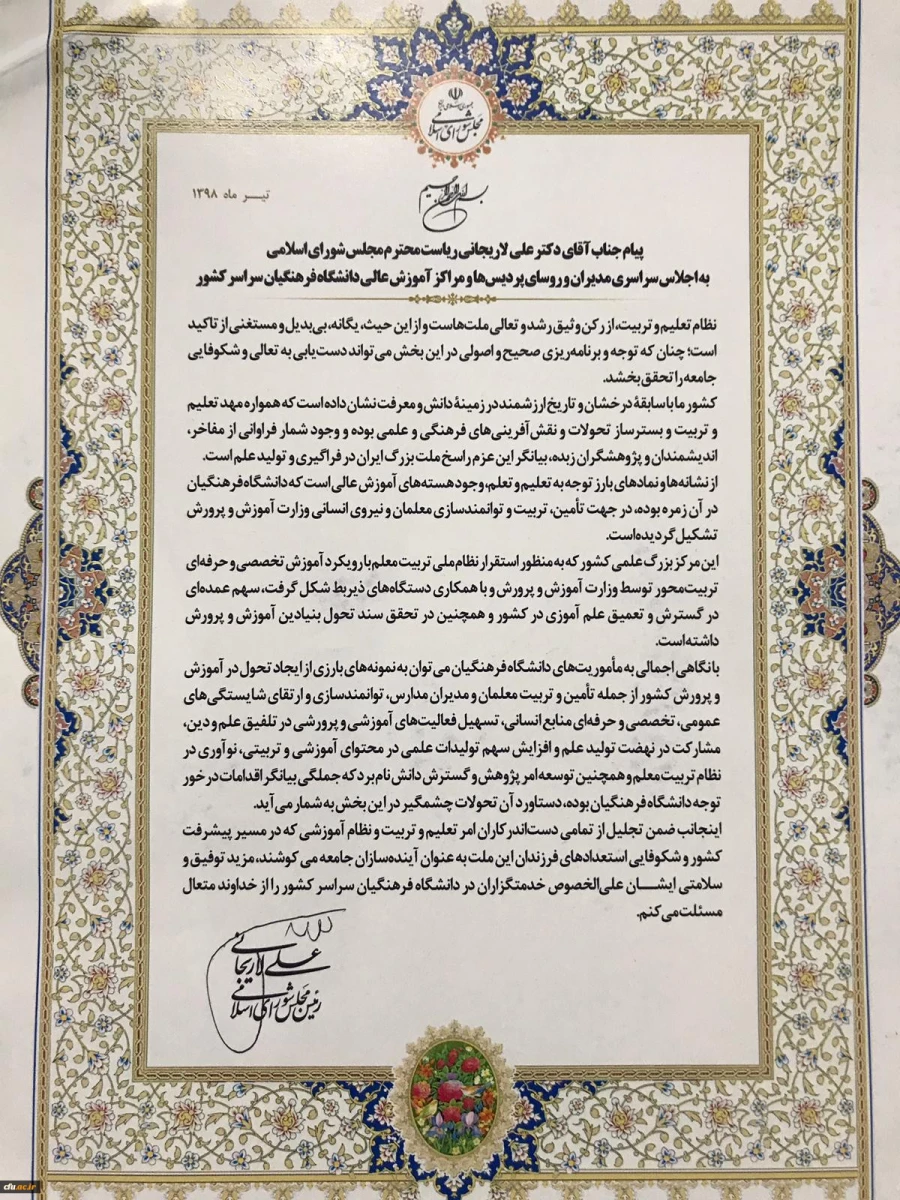 جمهوری اسلامی ایران
مجلس شورای اسلامی
تیـــر ماه ۱۳۹۸
بسم الله الرحمن الرحیم
پیام جناب آقای دکتر علی لاریجانی ریاست محترم مجلس شورای اسلامی
به اجلاس سراسری مدیران و روسای پردیس‌ها و مراکز آموزش عالی دانشگاه فرهنگیان سراسر کشور
نظام تعلیم و تربیت، از رکن وثیق رشد و تعالی ملت‌هاست و از این حیث، یگانه، بی‌بدیل و مستغنی از تاکید
است؛ چنان که توجه و برنامه‌ریزی صحیح و اصولی در این بخش می‌تواند دست‌یابی به تعالی و شکوفایی
جامعه را تحقق بخشد.
کشور ما با سابقهٔ درخشان و تاریخ ارزشمند در زمینهٔ دانش و معرفت نشان داده است که همواره مهد تعلیم
و تربیت و بسترساز تحولات و نقش‌آفرینی‌های فرهنگی و علمی بوده و وجود شمار فراوانی از مفاخر،
اندیشمندان و پژوهشگران زبده، بیانگر این عزم راسخ ملت بزرگ ایران در فراگیری و تولید علم است.
از نشانه‌ها و نمادهای بارز توجه به تعلیم و تعلم، وجود هسته‌های آموزش عالی است که دانشگاه فرهنگیان
در آن زمره بوده، در جهت تأمین، تربیت و توانمندسازی معلمان و نیروی انسانی وزارت آموزش و پرورش
تشکیل گردیده‌است.
این مرکز بزرگ علمی کشور که به منظور استقرار نظام ملی تربیت معلم با رویکرد آموزش تخصصی و حرفه‌ای
تربیت‌محور توسط وزارت آموزش و پرورش و با همکاری دستگاه‌های ذیربط شکل گرفت، سهم عمده‌ای
در گسترش و تعمیق علم آموزی در کشور و همچنین در تحقق سند تحول بنیادین آموزش و پرورش
داشته‌است.
با نگاهی اجمالی به مأموریت‌های دانشگاه فرهنگیان می‌توان به نمونه‌های بارزی از ایجاد تحول در آموزش
و پرورش کشور از جمله تأمین و تربیت معلمان و مدیران مدارس، توانمندسازی و ارتقای شایستگی‌های
عمومی، تخصصی و حرفه‌ای منابع انسانی، تسهیل فعالیت‌های آموزشی و پرورشی در تلفیق علم و دین،
مشارکت در نهضت تولید علم و افزایش سهم تولیدات علمی در محتوای آموزشی و تربیتی، نوآوری در
نظام تربیت معلم و همچنین توسعه امر پژوهش و گسترش دانش نام برد که جملگی بیانگر اقدامات در خور
توجه دانشگاه فرهنگیان بوده، دستاورد آن تحولات چشمگیر در این بخش به شمار می‌آید.
اینجانب ضمن تجلیل از تمامی دست‌اندرکاران امر تعلیم و تربیت و نظام آموزشی که در مسیر پیشرفت
کشور و شکوفایی استعدادهای فرزندان این ملت به عنوان آینده‌سازان جامعه می‌کوشند، مزید توفیق و
سلامتی ایشـــان علی‌الخصوص خدمتگزاران در دانشگاه فرهنگیان سراسر کشور را از خداوند متعال
مسئلت می‌کنم.
علی لاریجانی
رئیس مجلس شورای اسلامی
cfu.ac.ir